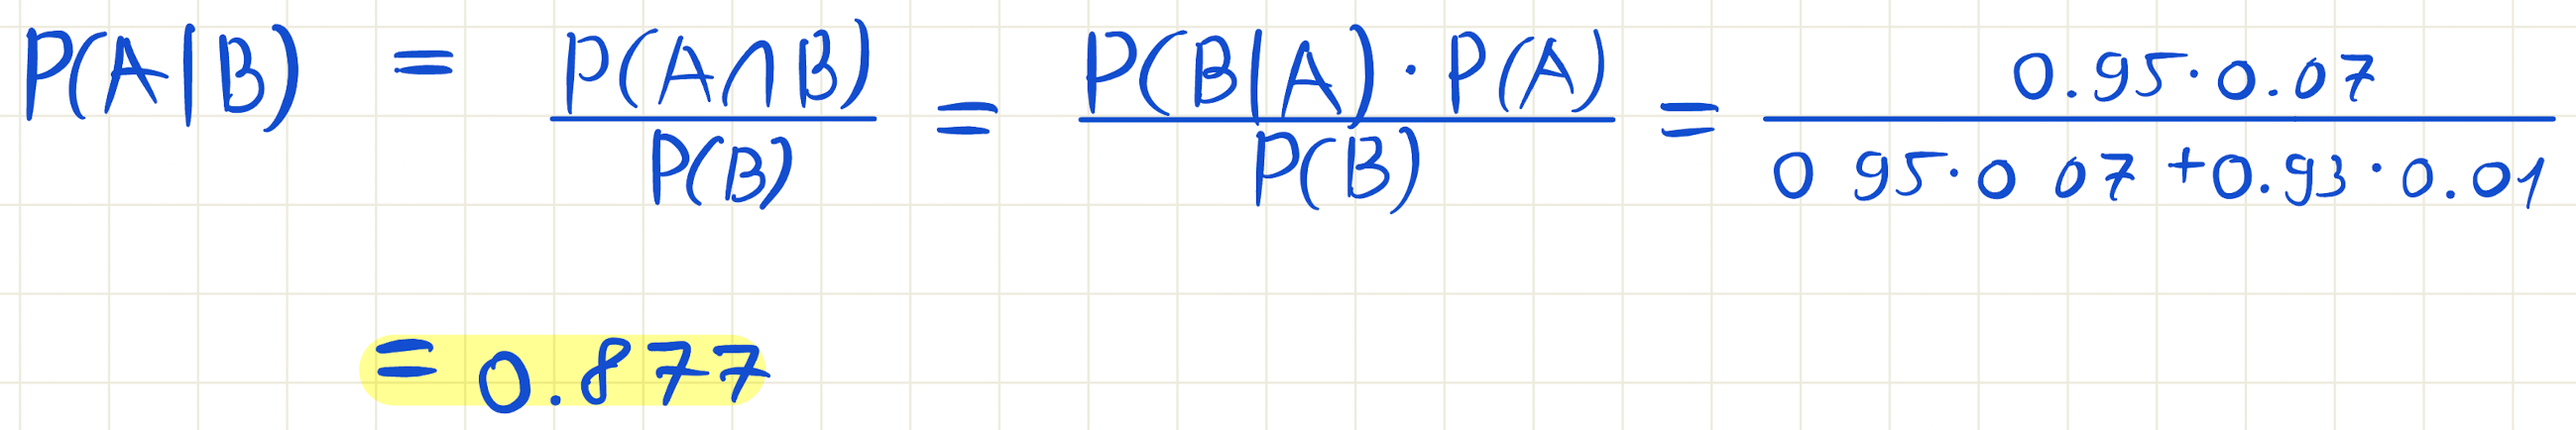 P(A|B) = P(A∩B) / P(B) = P(B|A) · P(A) / P(B) = 0.95·0.07 / 0 95·0 07 + 0.93 · 0.01
= 0.877